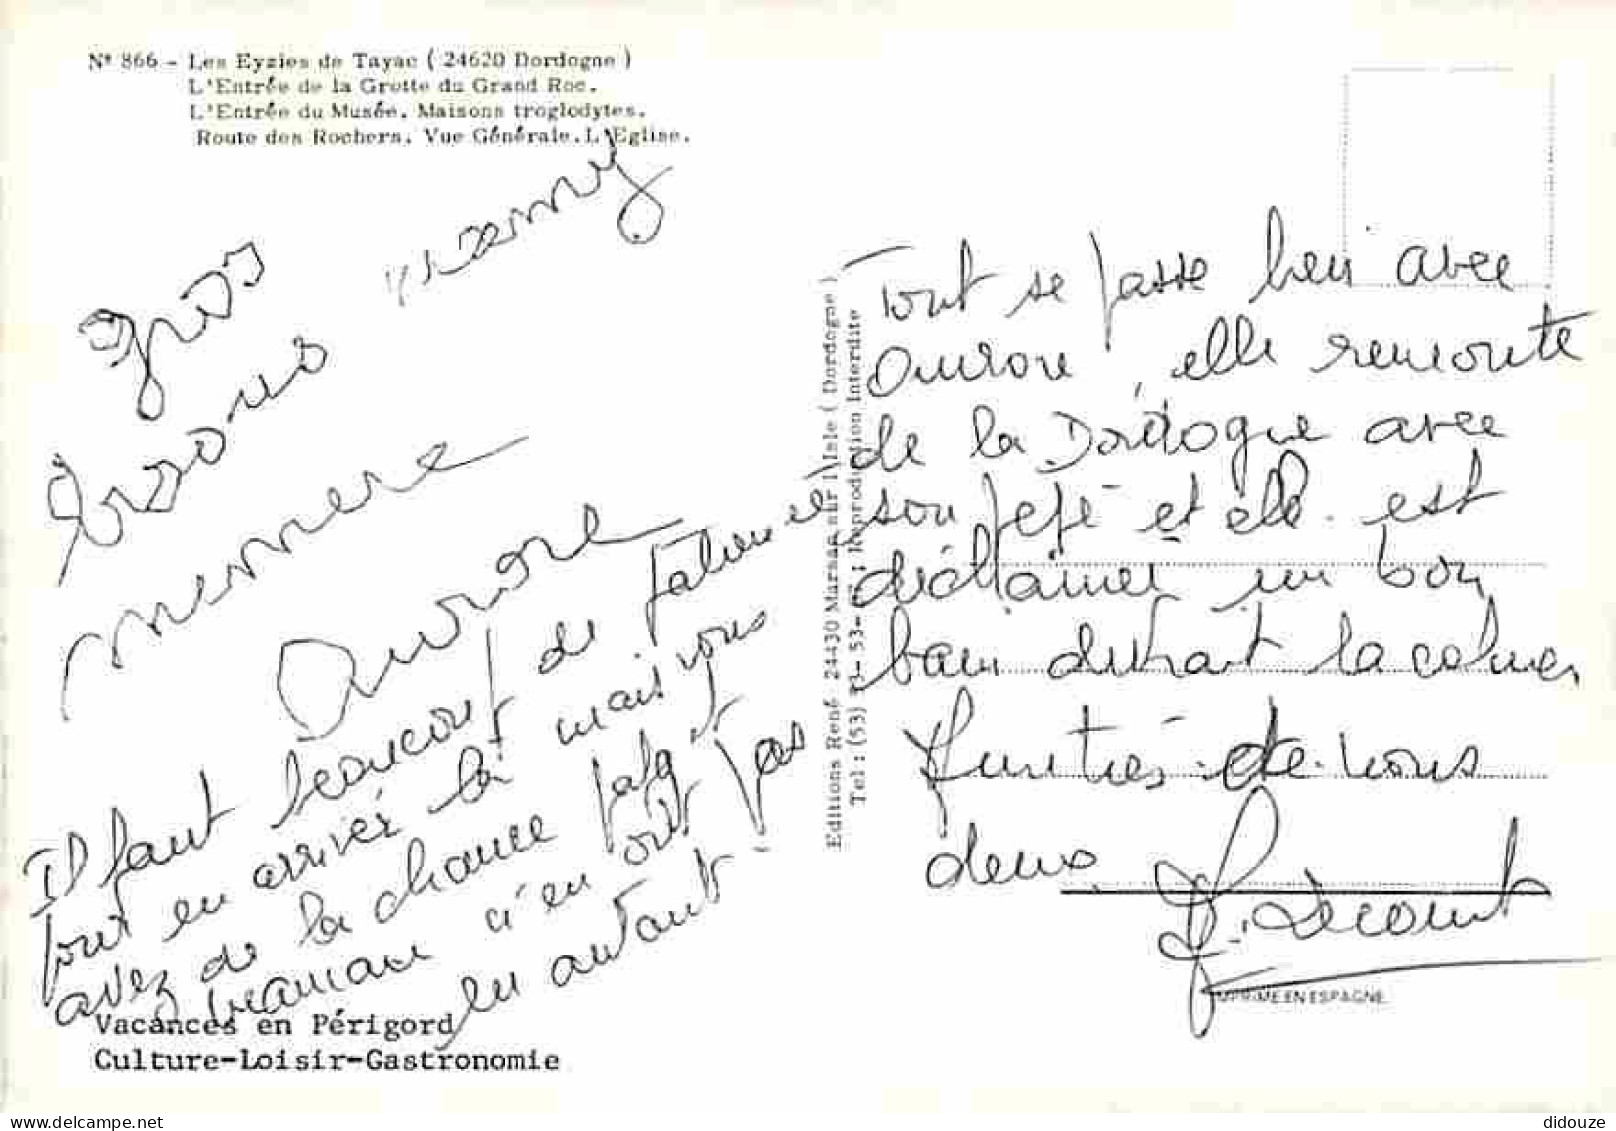 N° 866 - Les Eyzies de Tayac ( 24620 Dordogne )
L'Entrée de la Grotte du Grand Roc.
L'Entrée du Musée. Maisons troglodytes.
Route des Rochers. Vue Générale. L'Eglise.
gros
memere
Aurore
Il faut beaucoup de patience
pour en arrivér là mais vous
avez de la chance
maman n'en ont pas
eu autant
Vacances en Périgord
Culture-Loisir-Gastronomie
Editions René 24430 Marsac sur l'Isle ( Dordogne )
Reproduction Interdite
Tout se passe bien avec
Aurore, elle remonte
de la Dordogne avec
son pépé et elle est
déchainer un bon
bain devrait la calmer
deux
F. Lecourt
IMPRIME EN ESPAGNE
didouze